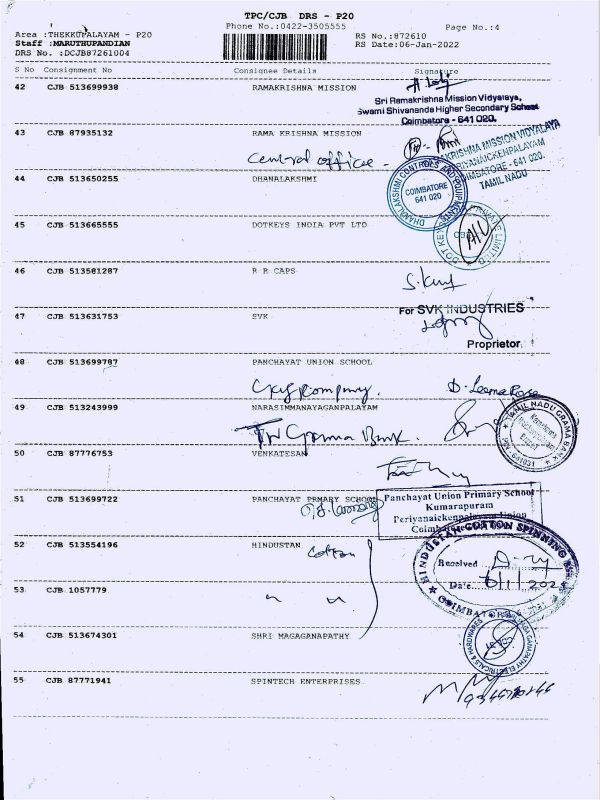 TPC/CJB DRS - P20
Phone No.:0422-3505555
Page No.:4
Area :THEKKUPALAYAM - P20
Staff :MARUTHUPANDIAN
DRS No. :DCJB87261004
RS No.:872610
RS Date:06-Jan-2022
S No Consignment No Consignee Details Signature
42 CJB 513699938 RAMAKRISHNA MISSION
Sri Ramakrishna Mission Vidyalaya,
Swami Shivananda Higher Secondary School
Coimbatore - 641 020.
43 CJB 87935132 RAMA KRISHNA MISSION
Central office -
KRISHNA MISSION VIDYALAYA
COIMBATORE - 641 020.
TAMIL NADU
44 CJB 513650255 DHANALAKSHMI
DHANALAKSHMI CONTROLS AND EQUIPMENTS
COIMBATORE
641 020
45 CJB 513665555 DOTKEYS INDIA PVT LTD
DOT KEYS PRIVATE LIMITED
46 CJB 513581287 R R CAPS
47 CJB 513631753 SVK
For SVK INDUSTRIES
Proprietor.
48 CJB 513699787 PANCHAYAT UNION SCHOOL
49 CJB 513243999 NARASIMMANAYAGANPALAYAM
Grama Bank.
TAMIL NADU GRAMA BANK
50 CJB 87776753 VENKATESAN
51 CJB 513699722 PANCHAYAT PRMARY SCHOOL
Panchayat Union Primary School
Kumarapuram
Periyanaickenpalayam Union
52 CJB 513554196 HINDUSTAN
Cotton
HINDUSTAN COTTON SPINNING
Received
Date 6/1/202
COIMBATORE
53 CJB 1057779
54 CJB 513674301 SHRI MAGAGANAPATHY
55 CJB 87771941 SPINTECH ENTERPRISES